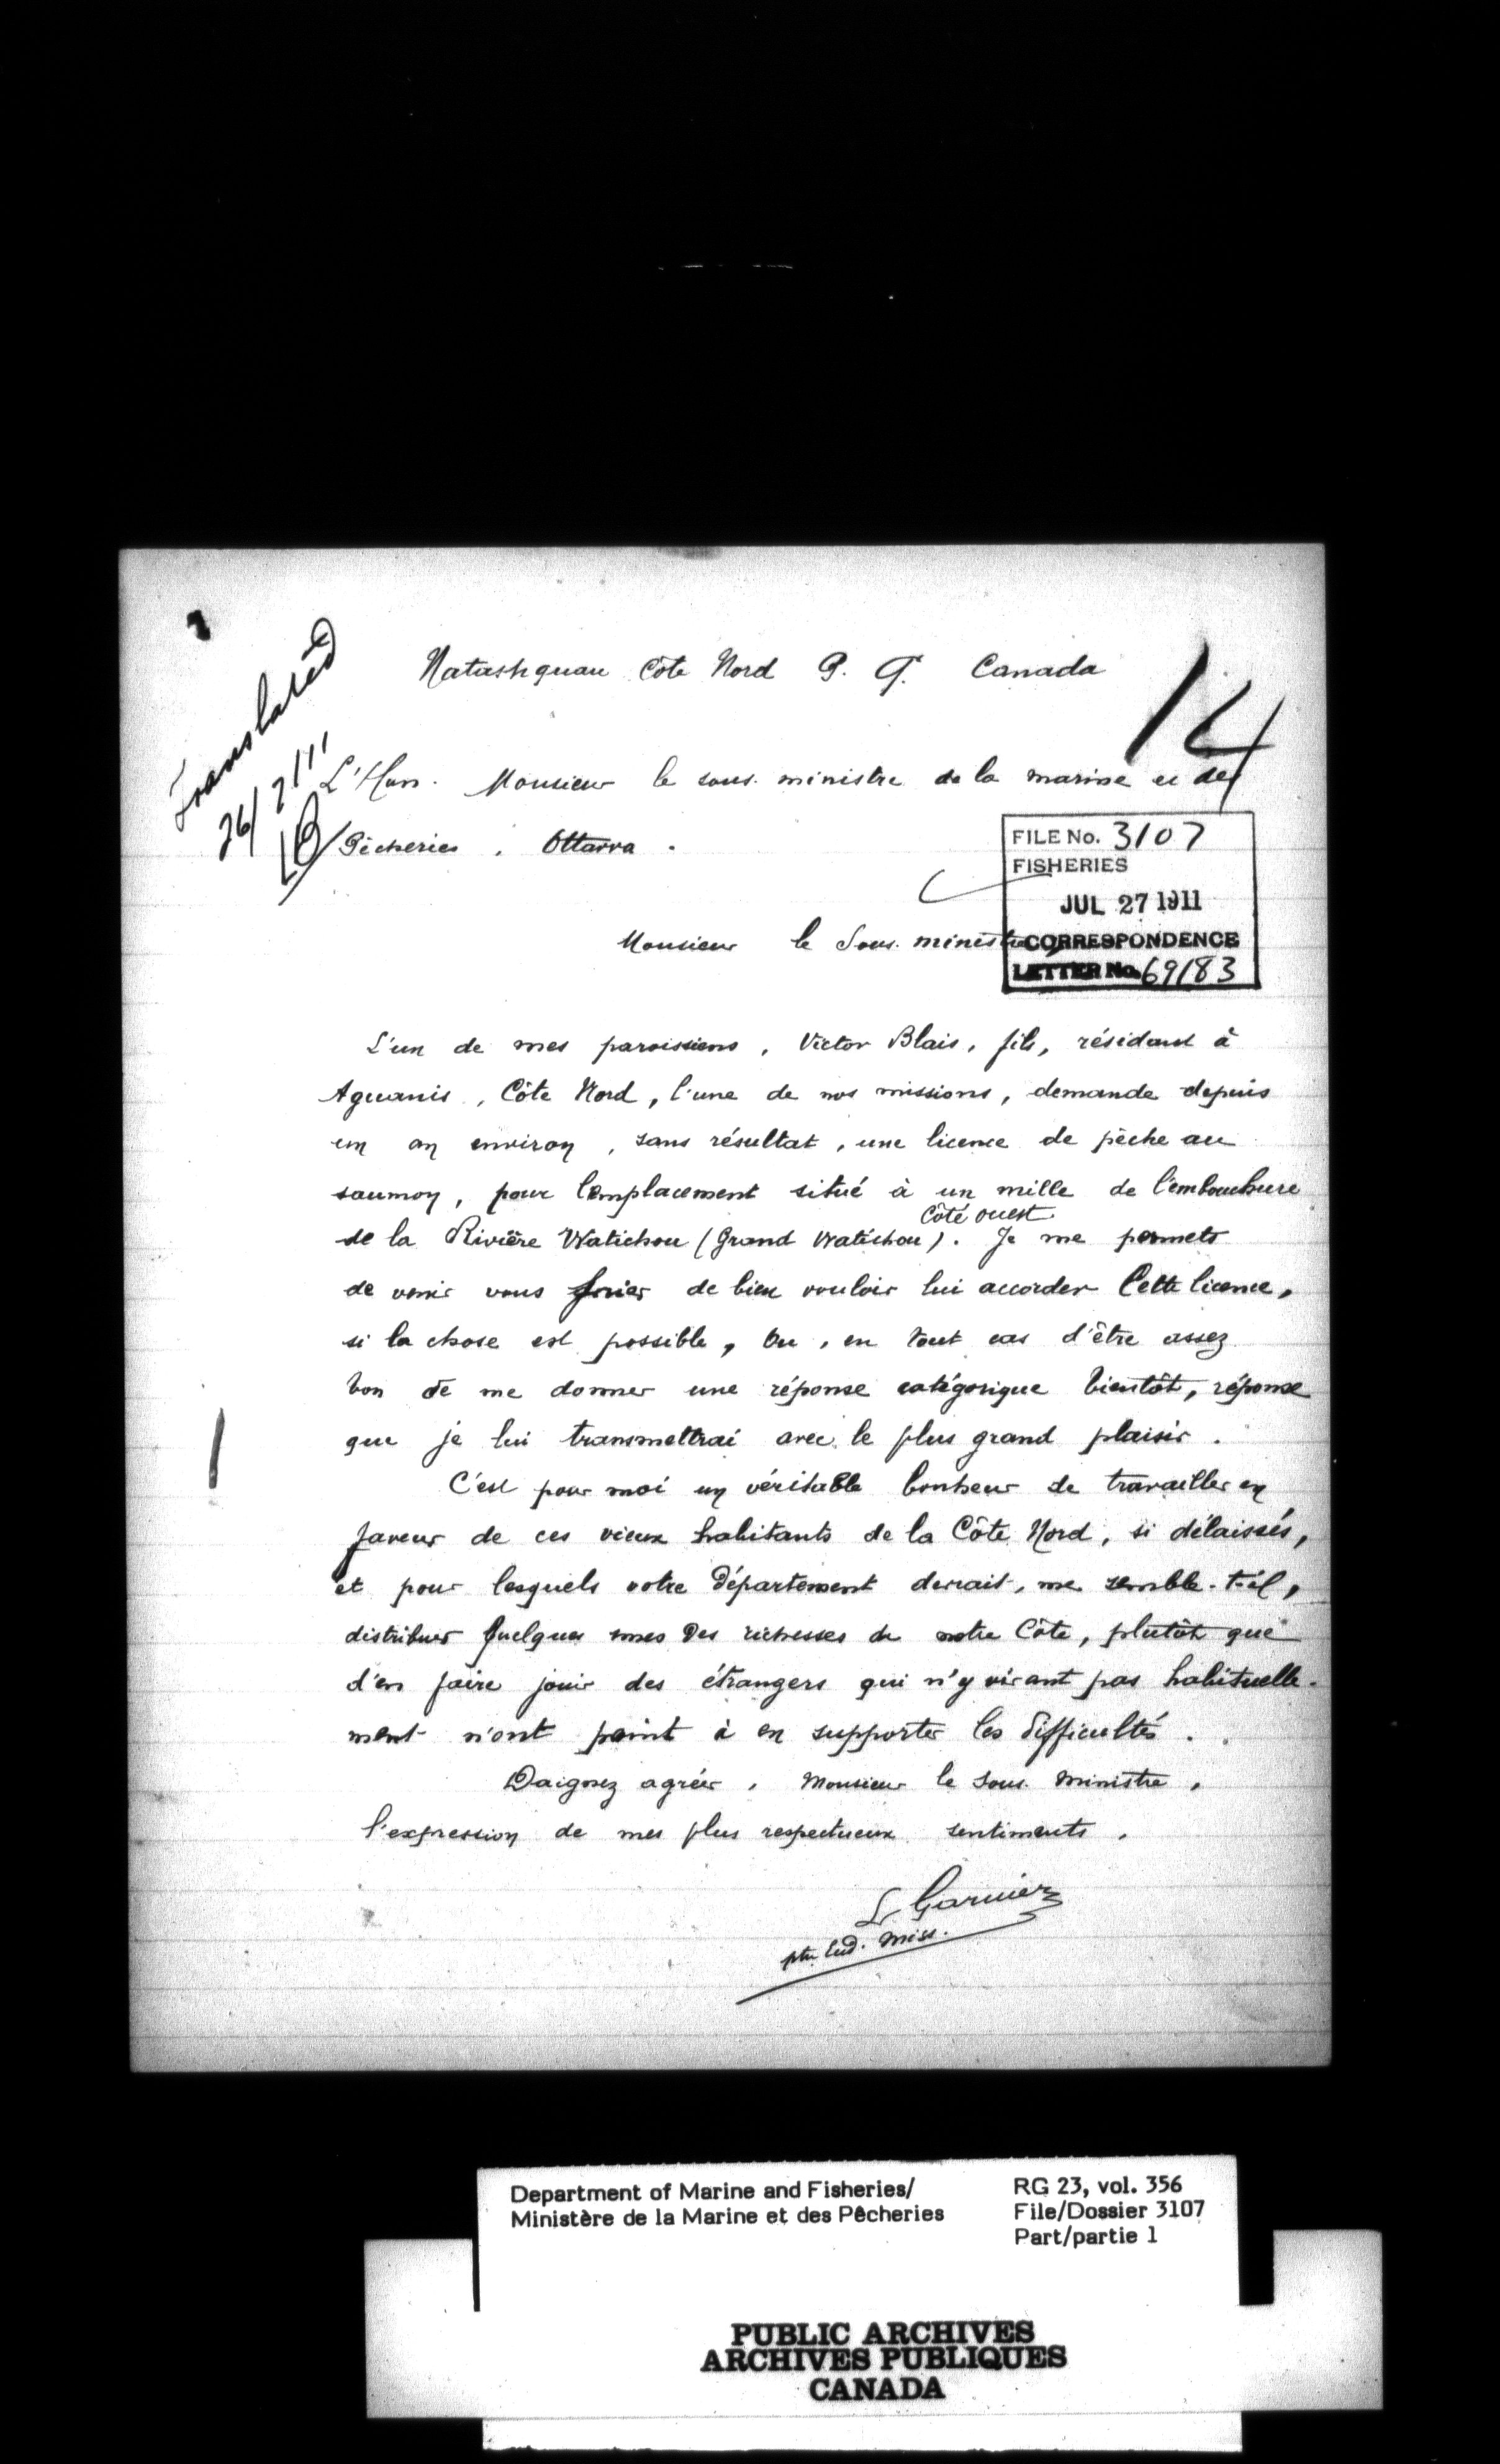 Translated
26/7/11
14
Natashquan Côte Nord P. Q. Canada
L'Hon. Monsieur le sous-ministre de la marine et des
Pêcheries, Ottawa.
FILE No. 3107
FISHERIES
JUL 27 1911
CORRESPONDENCE
LETTER No. 69183
Monsieur le Sous-ministre
L'un de mes paroissiens, Victor Blais, fils, résidant à
Aguanis, Côte Nord, l'une de nos missions, demande depuis
un an environ, sans résultat, une licence de pêche au
saumon, pour l'emplacement situé à un mille de l'embouchure
côté ouest
de la Rivière Watichou (Grand Watichou). Je me permets
de venir vous prier de bien vouloir lui accorder cette licence,
si la chose est possible, ou, en tout cas d'être assez
bon de me donner une réponse catégorique bientôt, réponse
que je lui transmettrai avec le plus grand plaisir.
C'est pour moi un véritable bonheur de travailler en
faveur de ces vieux habitants de la Côte Nord, si délaissés,
et pour lesquels votre Département devrait, me semble-t-il,
distribuer quelques unes des richesses de notre Côte, plutôt que
d'en faire jouir des étrangers qui n'y vivant pas habituelle-
ment n'ont point à en supporter les difficultés.
Daignez agréer, Monsieur le Sous-Ministre,
l'expression de mes plus respectueux sentiments.
L Garnier
ptre Eud. Miss.
Department of Marine and Fisheries/
Ministère de la Marine et des Pêcheries
RG 23, vol. 356
File/Dossier 3107
Part/partie 1
PUBLIC ARCHIVES
ARCHIVES PUBLIQUES
CANADA